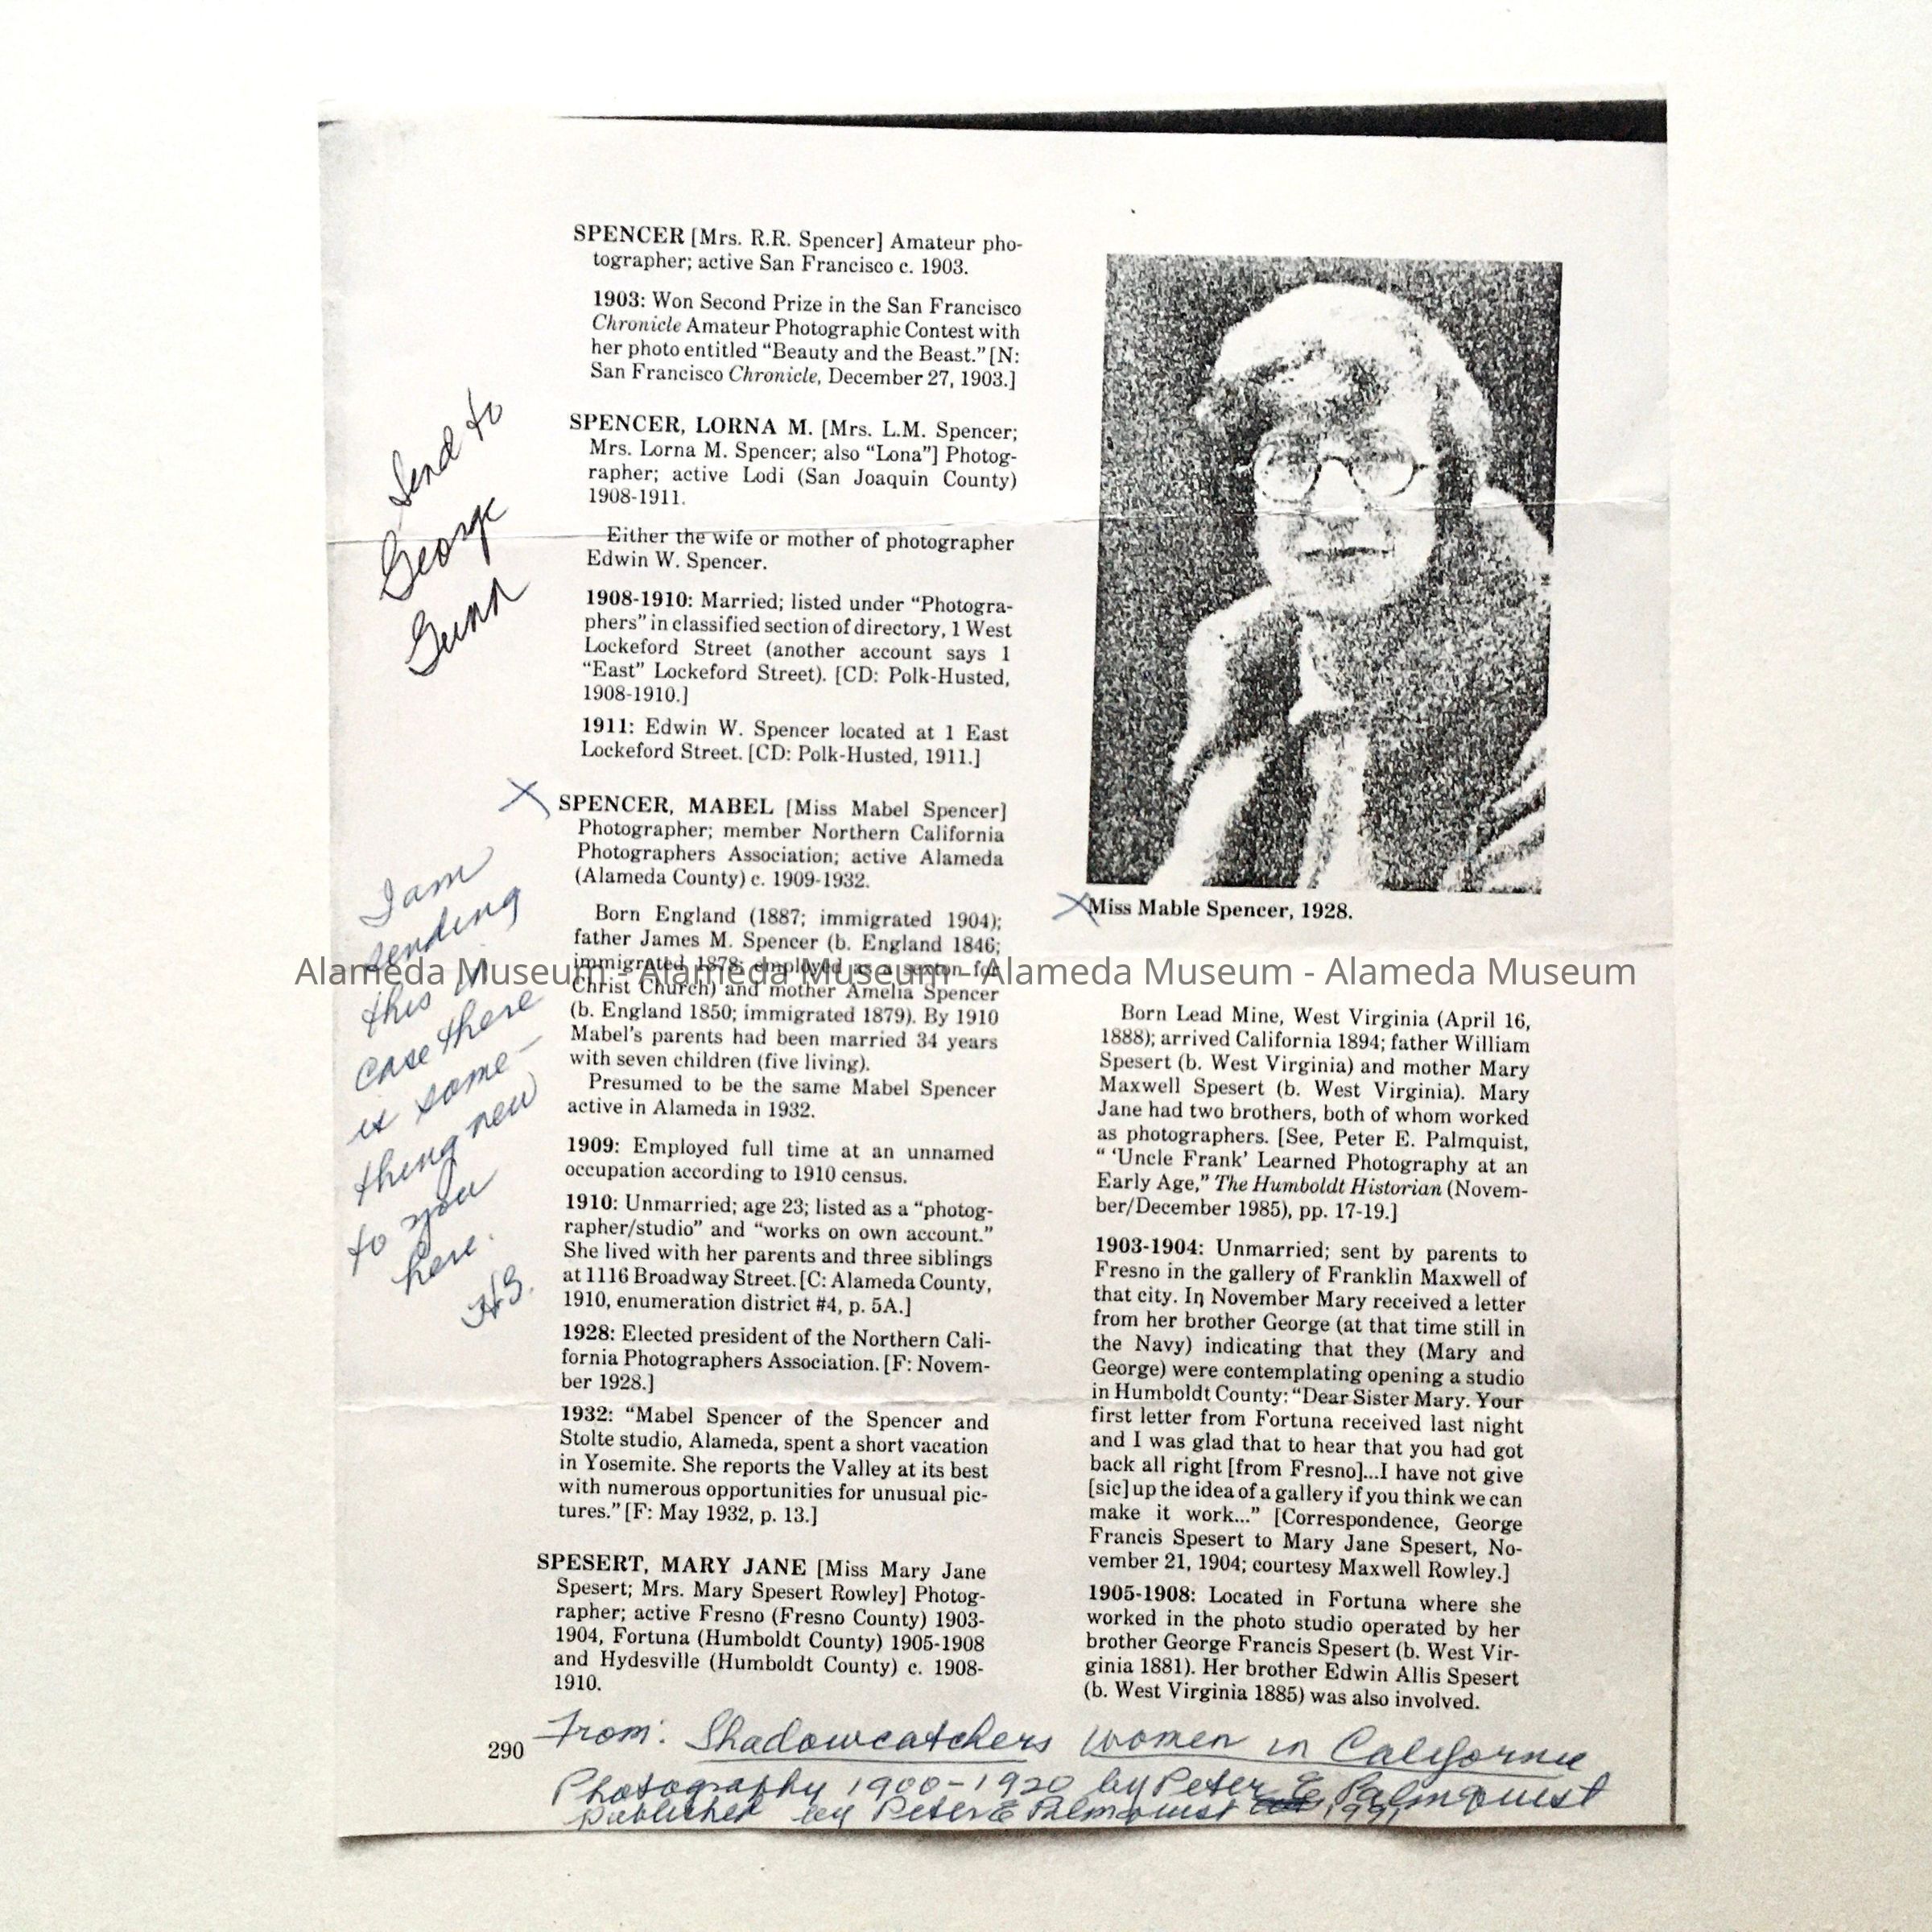 SPENCER [Mrs. R.R. Spencer] Amateur pho-
tographer; active San Francisco c. 1903.
1903: Won Second Prize in the San Francisco
Chronicle Amateur Photographic Contest with
her photo entitled “Beauty and the Beast.” [N:
San Francisco Chronicle, December 27, 1903.]
SPENCER, LORNA M. [Mrs. L.M. Spencer;
Mrs. Lorna M. Spencer; also “Lona”] Photog-
rapher; active Lodi (San Joaquin County)
1908-1911.
Either the wife or mother of photographer
Edwin W. Spencer.
1908-1910: Married; listed under “Photogra-
phers” in classified section of directory, 1 West
Lockeford Street (another account says 1
“East” Lockeford Street). [CD: Polk-Husted,
1908-1910.]
1911: Edwin W. Spencer located at 1 East
Lockeford Street. [CD: Polk-Husted, 1911.]
X
SPENCER, MABEL [Miss Mabel Spencer]
Photographer; member Northern California
Photographers Association; active Alameda
(Alameda County) c. 1909-1932.
Born England (1887; immigrated 1904);
father James M. Spencer (b. England 1846;
immigrated 1878; employed as a sexton for
Christ Church) and mother Amelia Spencer
(b. England 1850; immigrated 1879). By 1910
Mabel’s parents had been married 34 years
with seven children (five living).
Presumed to be the same Mabel Spencer
active in Alameda in 1932.
1909: Employed full time at an unnamed
occupation according to 1910 census.
1910: Unmarried; age 23; listed as a “photog-
rapher/studio” and “works on own account.”
She lived with her parents and three siblings
at 1116 Broadway Street. [C: Alameda County,
1910, enumeration district #4, p. 5A.]
1928: Elected president of the Northern Cali-
fornia Photographers Association. [F: Novem-
ber 1928.]
1932: “Mabel Spencer of the Spencer and
Stolte studio, Alameda, spent a short vacation
in Yosemite. She reports the Valley at its best
with numerous opportunities for unusual pic-
tures.” [F: May 1932, p. 13.]
SPESERT, MARY JANE [Miss Mary Jane
Spesert; Mrs. Mary Spesert Rowley] Photog-
rapher; active Fresno (Fresno County) 1903-
1904, Fortuna (Humboldt County) 1905-1908
and Hydesville (Humboldt County) c. 1908-
1910.
290
X
Miss Mable Spencer, 1928.
Born Lead Mine, West Virginia (April 16,
1888); arrived California 1894; father William
Spesert (b. West Virginia) and mother Mary
Maxwell Spesert (b. West Virginia). Mary
Jane had two brothers, both of whom worked
as photographers. [See, Peter E. Palmquist,
“ ‘Uncle Frank’ Learned Photography at an
Early Age,” The Humboldt Historian (Novem-
ber/December 1985), pp. 17-19.]
1903-1904: Unmarried; sent by parents to
Fresno in the gallery of Franklin Maxwell of
that city. In November Mary received a letter
from her brother George (at that time still in
the Navy) indicating that they (Mary and
George) were contemplating opening a studio
in Humboldt County: “Dear Sister Mary. Your
first letter from Fortuna received last night
and I was glad that to hear that you had got
back all right [from Fresno]...I have not give
[sic] up the idea of a gallery if you think we can
make it work...” [Correspondence, George
Francis Spesert to Mary Jane Spesert, No-
vember 21, 1904; courtesy Maxwell Rowley.]
1905-1908: Located in Fortuna where she
worked in the photo studio operated by her
brother George Francis Spesert (b. West Vir-
ginia 1881). Her brother Edwin Allis Spesert
(b. West Virginia 1885) was also involved.
Send to
George
Gunn
I am
sending
this in
case there
is some-
thing new
to you
here.
HG.
From: Shadowcatchers Women in California
Photography 1900-1920 by Peter E Palmquist
published by Peter E Palmquist 1991
Alameda Museum - Alameda Museum - Alameda Museum - Alameda Museum